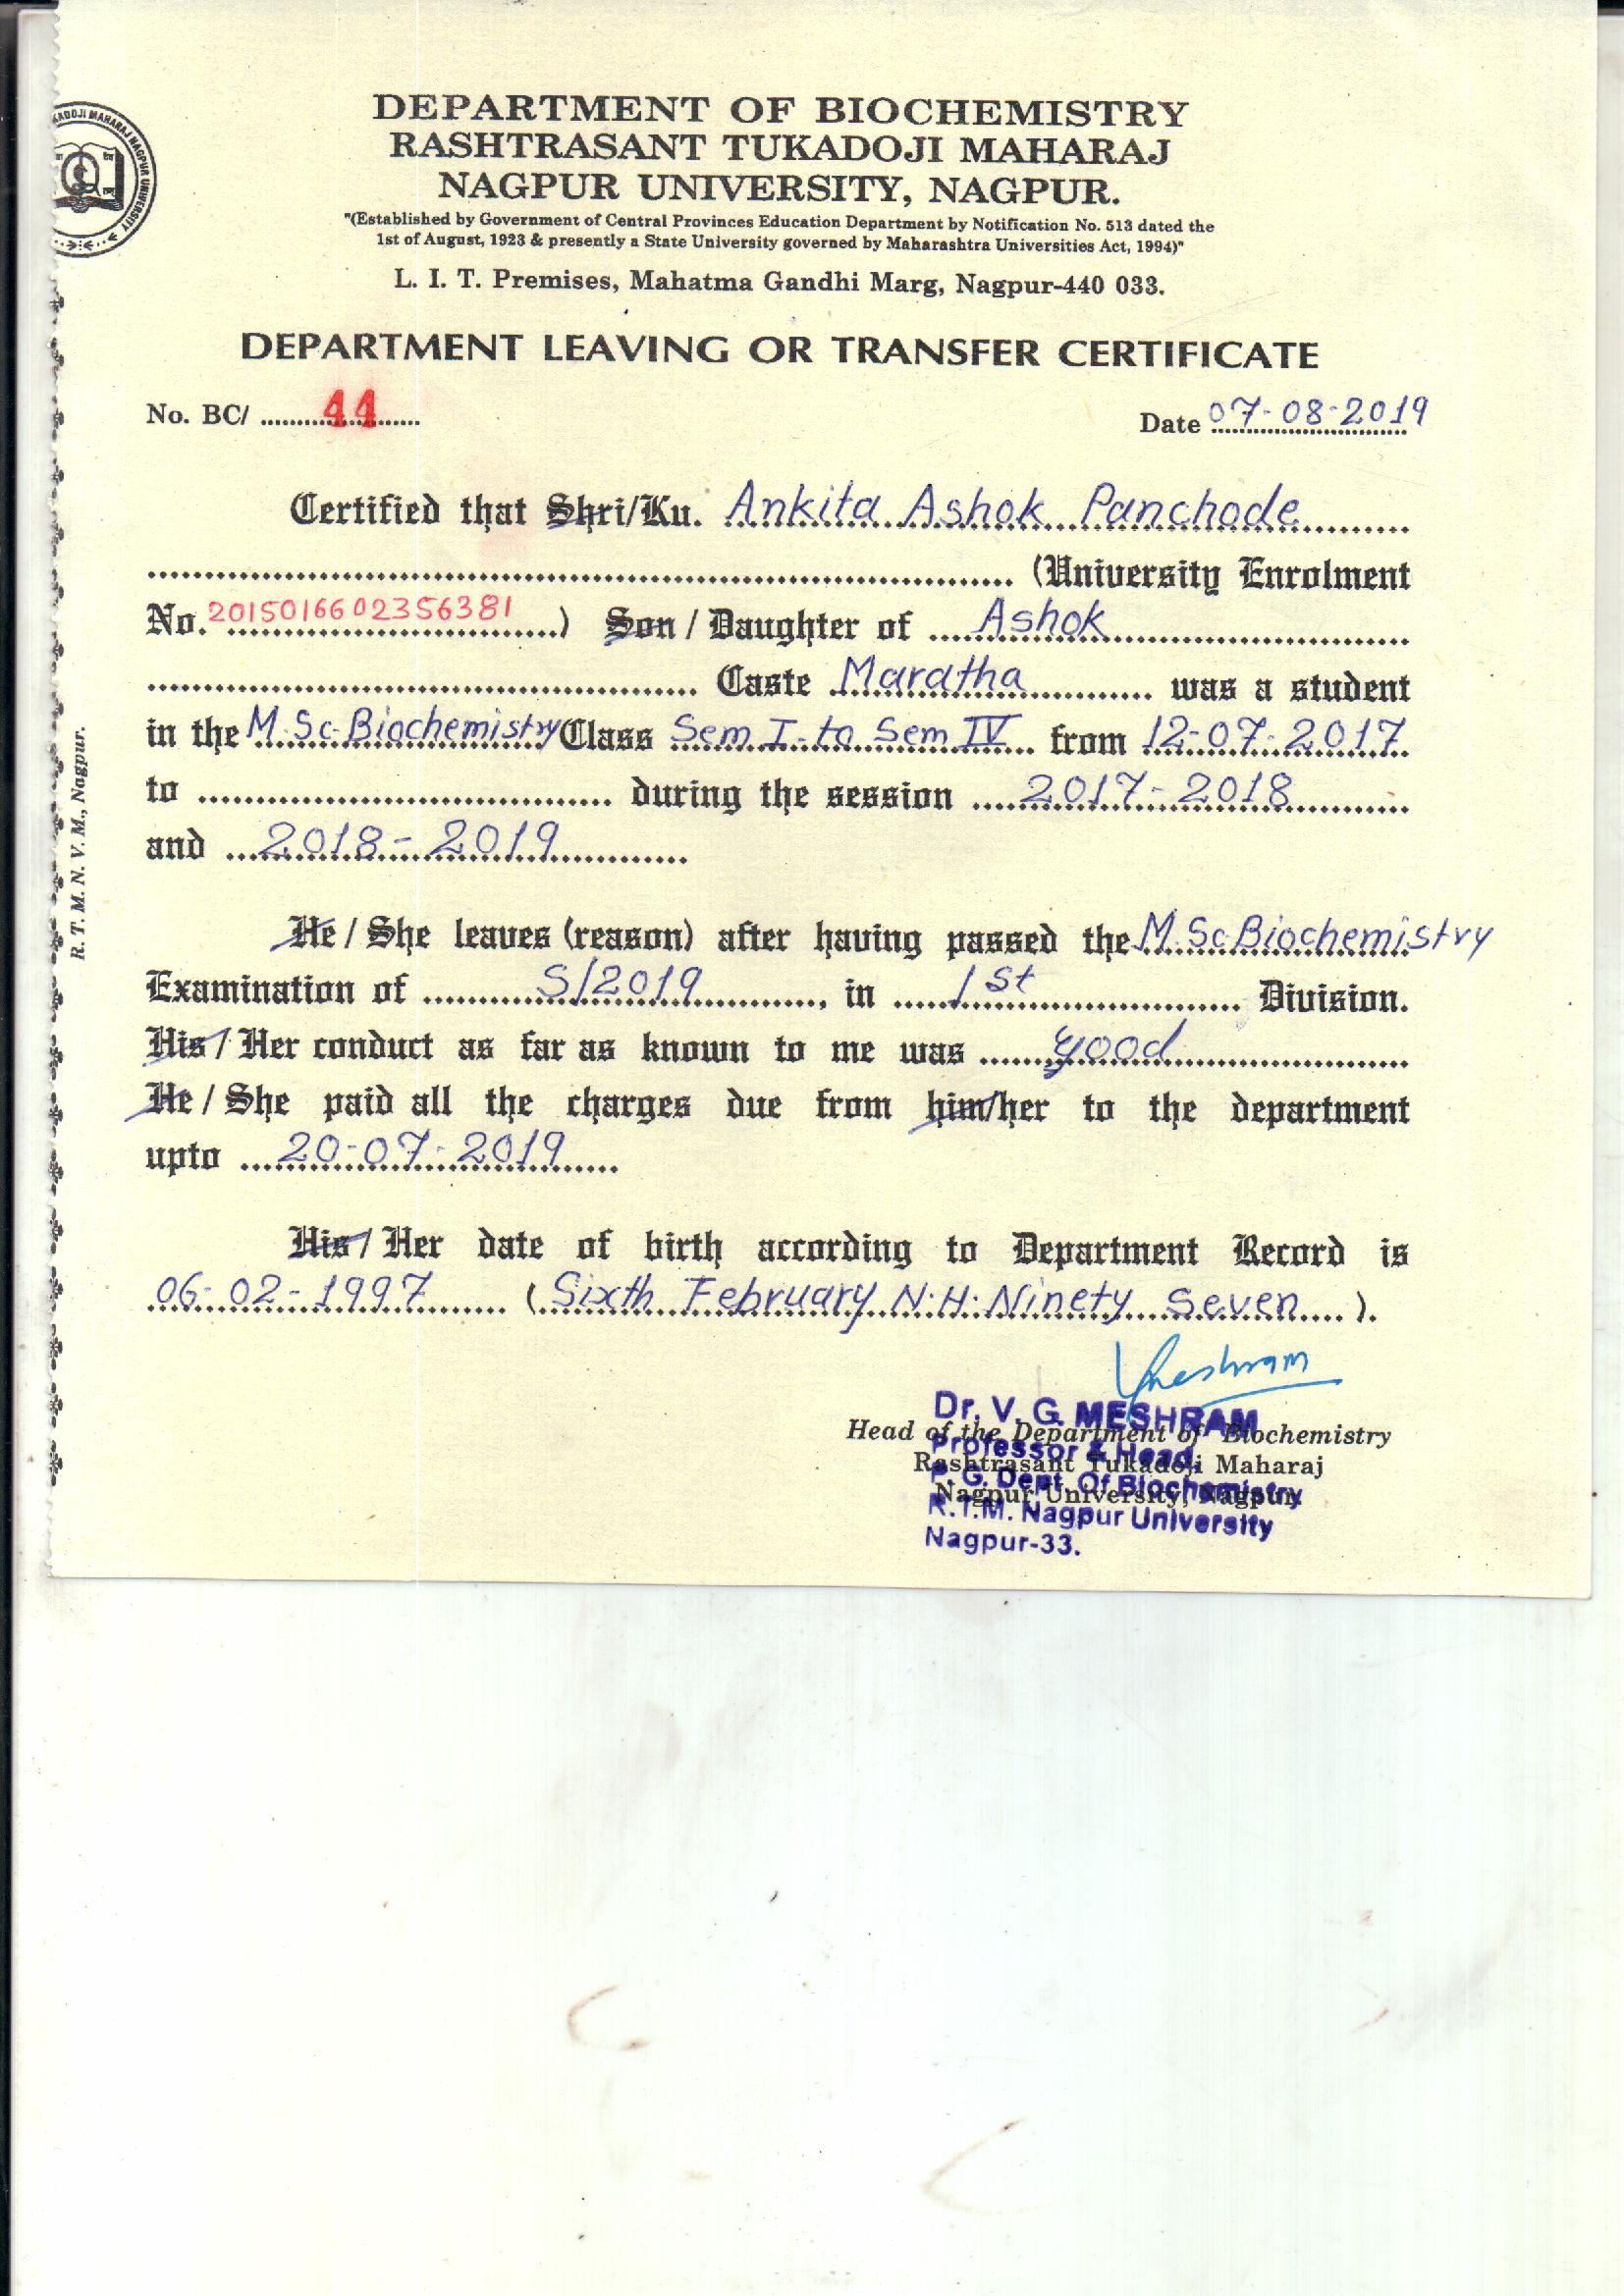 DEPARTMENT OF BIOCHEMISTRY
RASHTRASANT TUKADOJI MAHARAJ
NAGPUR UNIVERSITY, NAGPUR.
"(Established by Government of Central Provinces Education Department by Notification No. 513 dated the
1st of August, 1923 & presently a State University governed by Maharashtra Universities Act, 1994)"
L. I. T. Premises, Mahatma Gandhi Marg, Nagpur-440 033.
DEPARTMENT LEAVING OR TRANSFER CERTIFICATE
No. BC/ 44 Date 07-08-2019
Certified that Shri/Ku. Ankita Ashok Panchode
(University Enrolment
No. 2015016602356381) Son / Daughter of Ashok
Caste Maratha was a student
in the M.Sc-Biochemistry Class Sem I to Sem IV from 12-07-2017
to during the session 2017-2018
and 2018-2019
He / She leaves (reason) after having passed the M.Sc-Biochemistry
Examination of S/2019, in 1st Division.
His / Her conduct as far as known to me was good
He / She paid all the charges due from him/her to the department
upto 20-07-2019
His / Her date of birth according to Department Record is
06-02-1997 (Sixth February N.H. Ninety Seven).
Meshram
Dr. V. G. MESHRAM
Head of the Department of Biochemistry
Professor & Head
Rashtrasant Tukadoji Maharaj
P. G. Dept. Of Biochemistry
Nagpur University, Nagpur.
R.T.M. Nagpur University
Nagpur-33.
R. T. M. N. V. M., Nagpur.
KADOJI MAHARAJ NAGPUR UNIVERSITY